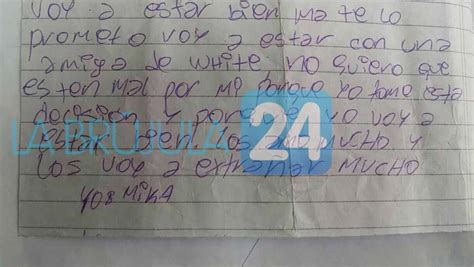 voy a estar bien ma te lo
prometo voy a estar con una
amiga de white no quiero que
esten mal por mi porque yo tome esta
decision y porque yo voy a
estar bien los amo mucho y
los voy a extrañar mucho
yo: mika
LA BRUJULA 24